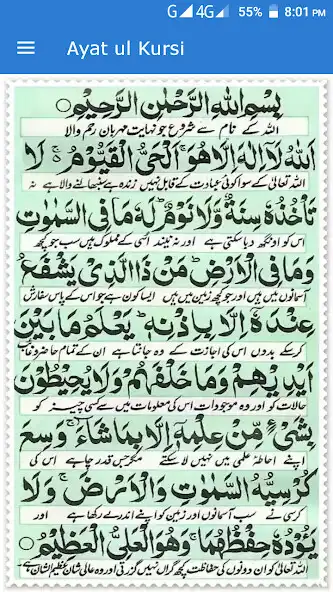 G 4G 55% 8:01 PM
Ayat ul Kursi
بِسْمِ اللهِ الرَّحْمٰنِ الرَّحِيْمِ ○
اللہ کے نام سے شروع جو نہایت مہربان رحم والا
اَللهُ لَآ اِلٰهَ اِلَّا هُوَ ۚ اَلْحَيُّ الْقَيُّوْمُ ۚ لَا
اللہ تعالیٰ کے سوا کوئی عبادت کے قابل نہیں زندہ ہے سنبھالنے والا ہے نہ
تَاْخُذُهٗ سِنَةٌ وَّلَا نَوْمٌ ؕ لَهٗ مَا فِي السَّمٰوٰتِ
اس کو اونگھ دبا سکتی ہے اور نہ نیند اسی کے مملوک ہیں سب جو کچھ
وَمَا فِي الْاَرْضِ ؕ مَنْ ذَا الَّذِيْ يَشْفَعُ
آسمانوں میں ہیں اور جو کچھ زمین میں ہیں ایسا کون ہے جو اس کے پاس سفارش
عِنْدَهٗٓ اِلَّا بِاِذْنِهٖ ؕ يَعْلَمُ مَا بَيْنَ
کرسکے بدوں اس کی اجازت کے وہ جانتا ہے ان کے تمام حاضر و غائب
اَيْدِيْهِمْ وَمَا خَلْفَهُمْ ۚ وَلَا يُحِيْطُوْنَ
حالات کو اور وہ موجودات اس کی معلومات میں سے کسی چیز کو
بِشَيْءٍ مِّنْ عِلْمِهٖٓ اِلَّا بِمَا شَآءَ ۚ وَسِعَ
اپنے احاطۂ علمی میں نہیں لا سکتے مگر جس قدر چاہے اس کی
كُرْسِيُّهُ السَّمٰوٰتِ وَالْاَرْضَ ۚ وَلَا
کرسی نے سب آسمانوں اور زمین کو اپنے اندر لے رکھا ہے اور
يَـُٔوْدُهٗ حِفْظُهُمَا ۚ وَهُوَ الْعَلِيُّ الْعَظِيْمُ ○
اللہ تعالیٰ کو ان دونوں کی حفاظت کچھ گراں نہیں گزرتی اور وہ عالی شان عظیم الشان ہے